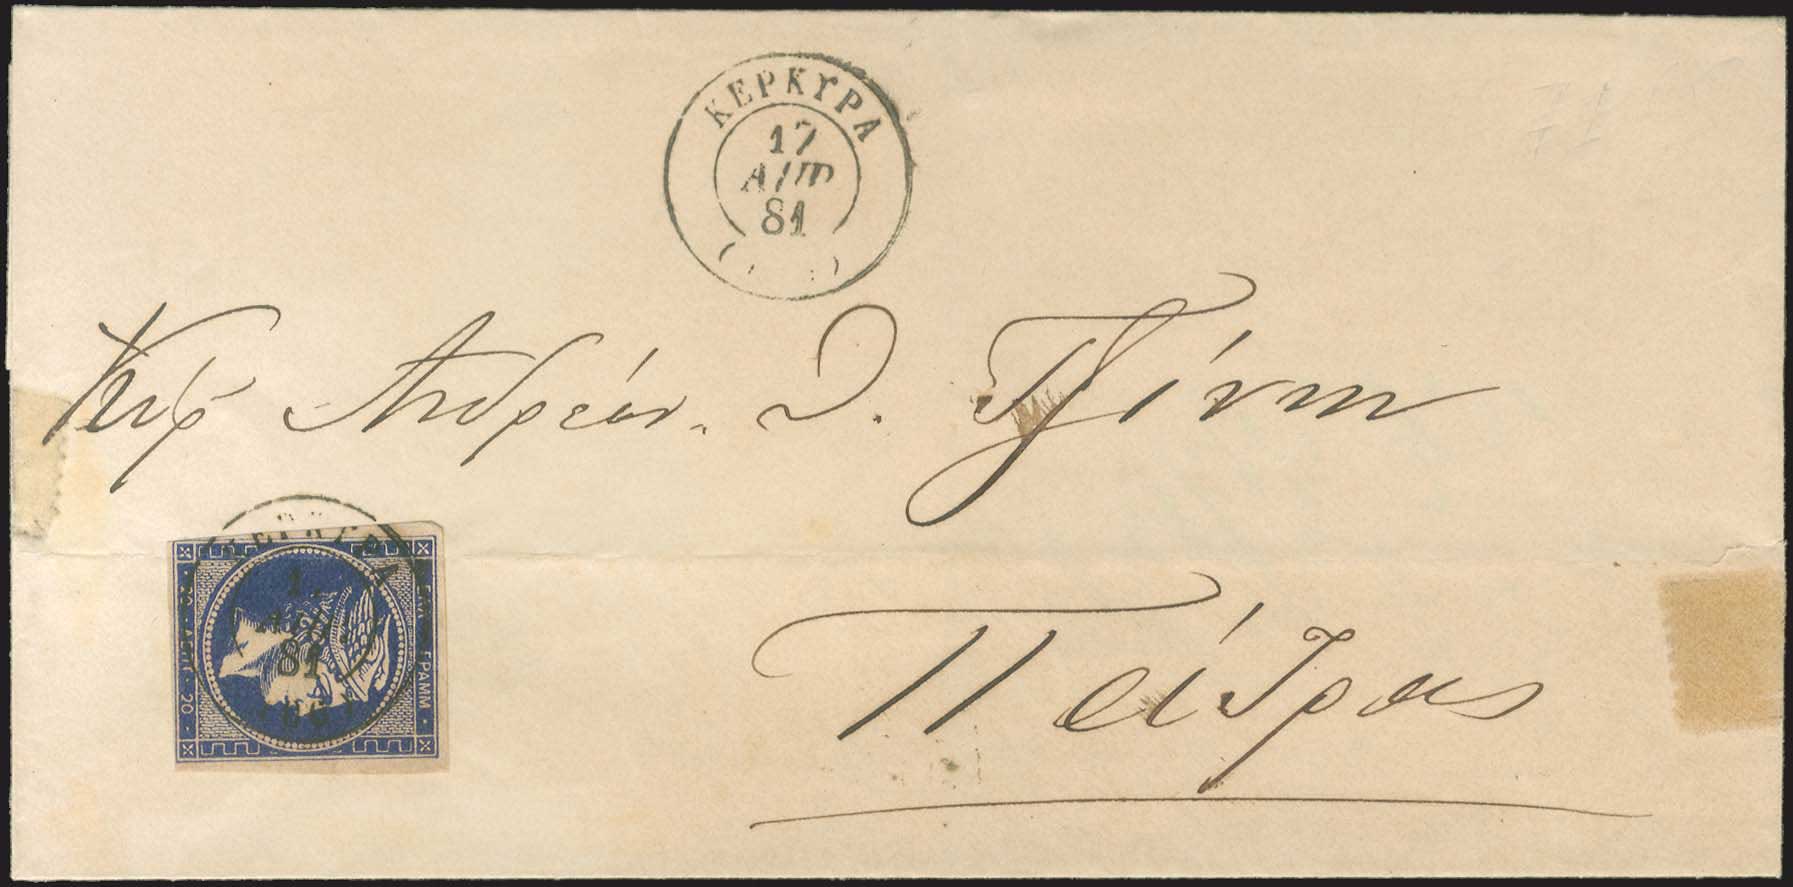 ΚΕΡΚΥΡΑ
17
ΑΠΡ
81
Κυρ Ανδρέαν. Θ. Τζίνην
ΚΕΡΚΥΡΑ
81
ΕΛΛ ΓΡΑΜΜ
20 ΛΕΠΤ 20
Πάτρας